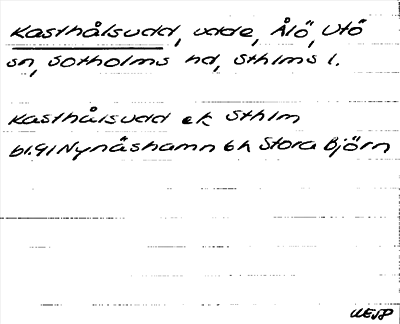 Kasthålsudd, udde, Ålö, Utö
sn, Sotholms hd, Sthlms l.
Kasthålsudd ek Sthlm
bl.91 Nynäshamn 6h Stora Björn